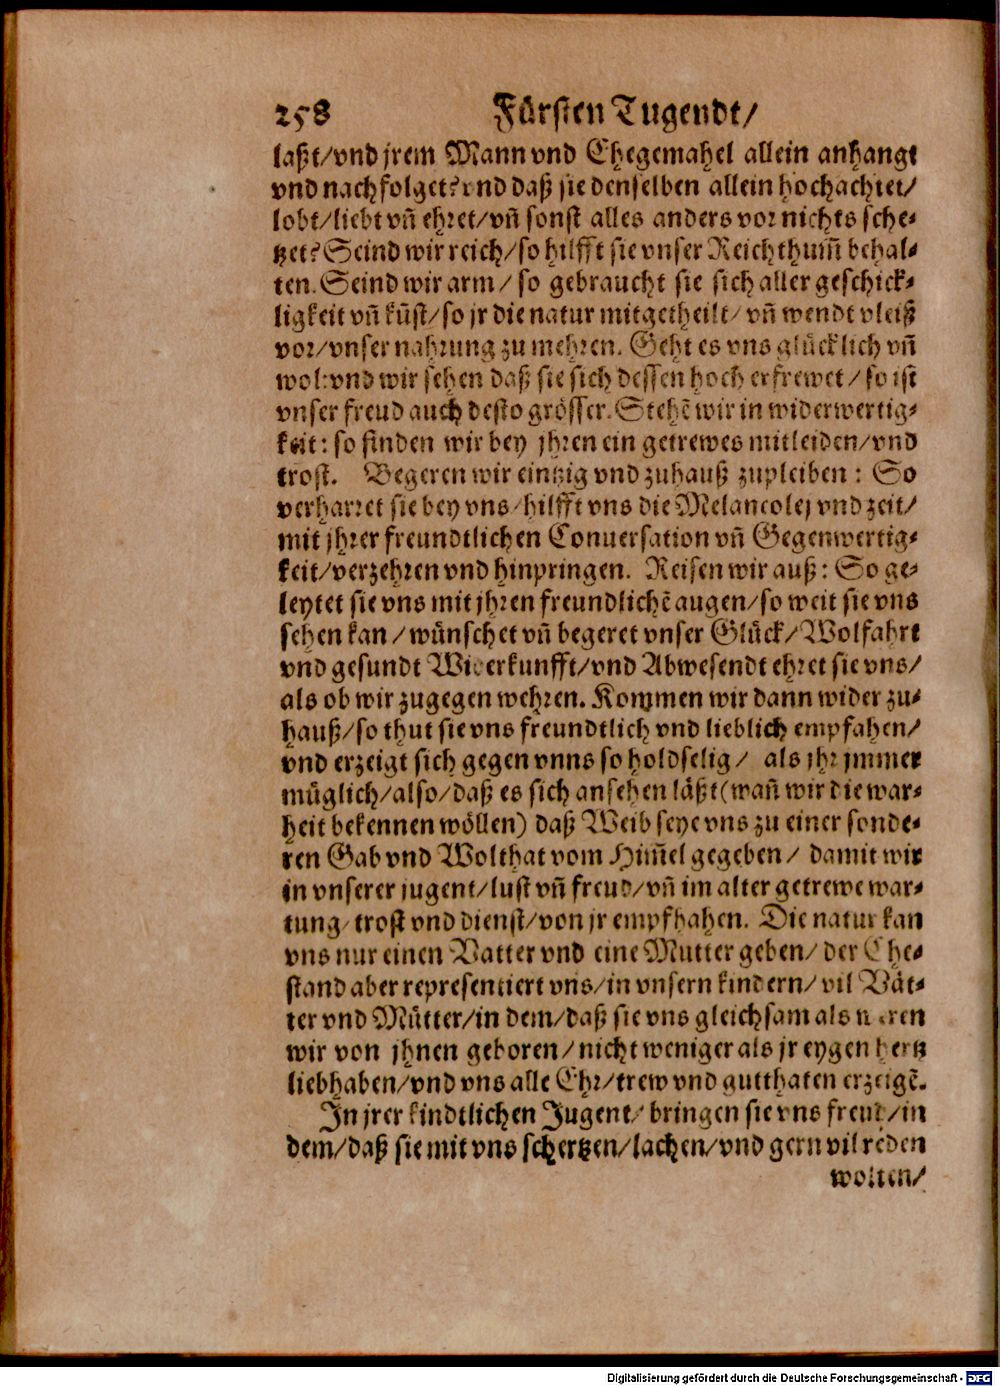 258 Fürsten Tugendt/
laßt/vnd jrem Mann vnd Ehegemahel allein anhangt
vnd nachfolget? vnd daß sie denselben allein hochachtet/
lobt/liebt vñ ehret/vñ sonst alles anders vor nichts sche-
tzet? Seind wir reich/so hilfft sie vnser Reichthum̃ behal-
ten. Seind wir arm/ so gebraucht sie sich aller geschick-
ligkeit vñ kũst/so jr die natur mitgetheilt/ vñ wendt vleiß
vor/vnser nahrung zu mehren. Geht es vns glücklich vñ
wol: vnd wir sehen daß sie sich dessen hoch erfrewet/so ist
vnser freud auch desto grösser. Stehẽ wir in widerwertig-
keit: so finden wir bey jhren ein getrewes mitleiden/vnd
trost. Begeren wir eintzig vnd zuhauß zupleiben: So
verharret sie bey vns/hilfft vns die Melancolej vnd zeit/
mit jhrer freundtlichen Conuersation vñ Gegenwertig-
keit/verzehren vnd hinpringen. Reisen wir auß: So ge-
leytet sie vns mit jhren freundlichẽ augen/so weit sie vns
sehen kan/wünschet vñ begeret vnser Glück/Wolfahrt
vnd gesundt Widerkunfft/vnd Abwesendt ehret sie vns/
als ob wir zugegen wehren. Kommen wir dann wider zu-
hauß/so thut sie vns freundtlich vnd lieblich empfahen/
vnd erzeigt sich gegen vnns so holdselig/ als jhr jmmer
müglich/also/daß es sich ansehen läßt(wañ wir die war-
heit bekennen wöllen) daß Weib seye vns zu einer sonde-
ren Gab vnd Wolthat vom Him̃el gegeben/ damit wir
in vnserer jugent/lust vñ freud/vñ im alter getrewe war-
tung/trost vnd dienst/von jr empfhahen. Die natur kan
vns nur einen Vatter vnd eine Mutter geben/ der Ehe-
stand aber representiert vns/in vnsern kindern/vil Vät-
ter vnd Mütter/in dem/daß sie vns gleichsam als weren
wir von jhnen geboren/nicht weniger als jr eygen hertz
liebhaben/vnd vns alle Ehr/trew vnd gutthaten erzeigẽ.
In jrer kindtlichen Jugent/ bringen sie vns freud/in
dem/daß sie mit vns schertzen/lachen/vnd gern vil reden
wolten/
Digitalisierung gefördert durch die Deutsche Forschungsgemeinschaft - DFG